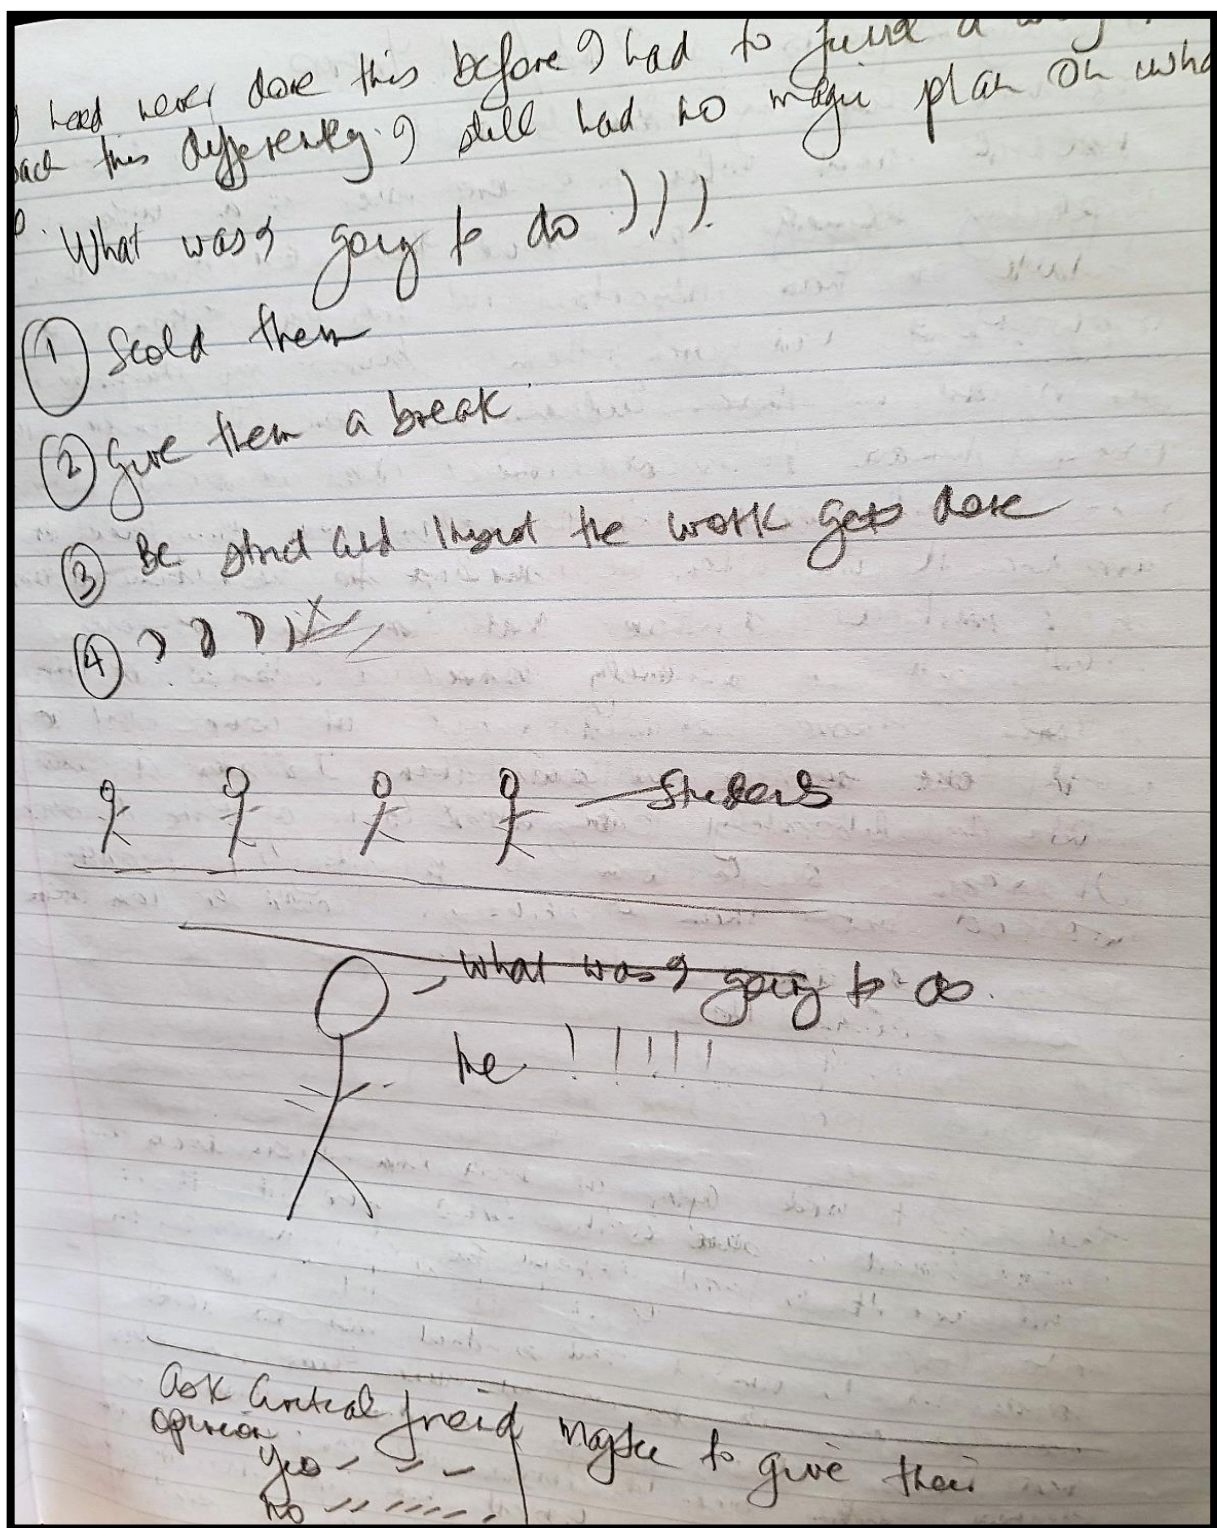 had never done this before I had to find a way
this differently. I still had no magic plan on
What was I going to do ) ) ).
① Scold them
② Give them a break
③ Be strict and insist the work gets done
④ ? ? ? ?
Students
What was I going to do.
me ! ! ! ! !
Ask Critical freind maybe to give their
opinion.
Yes - - -
No